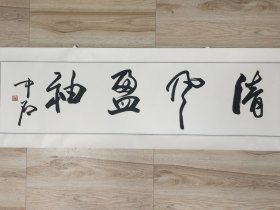 清风盈袖
中石